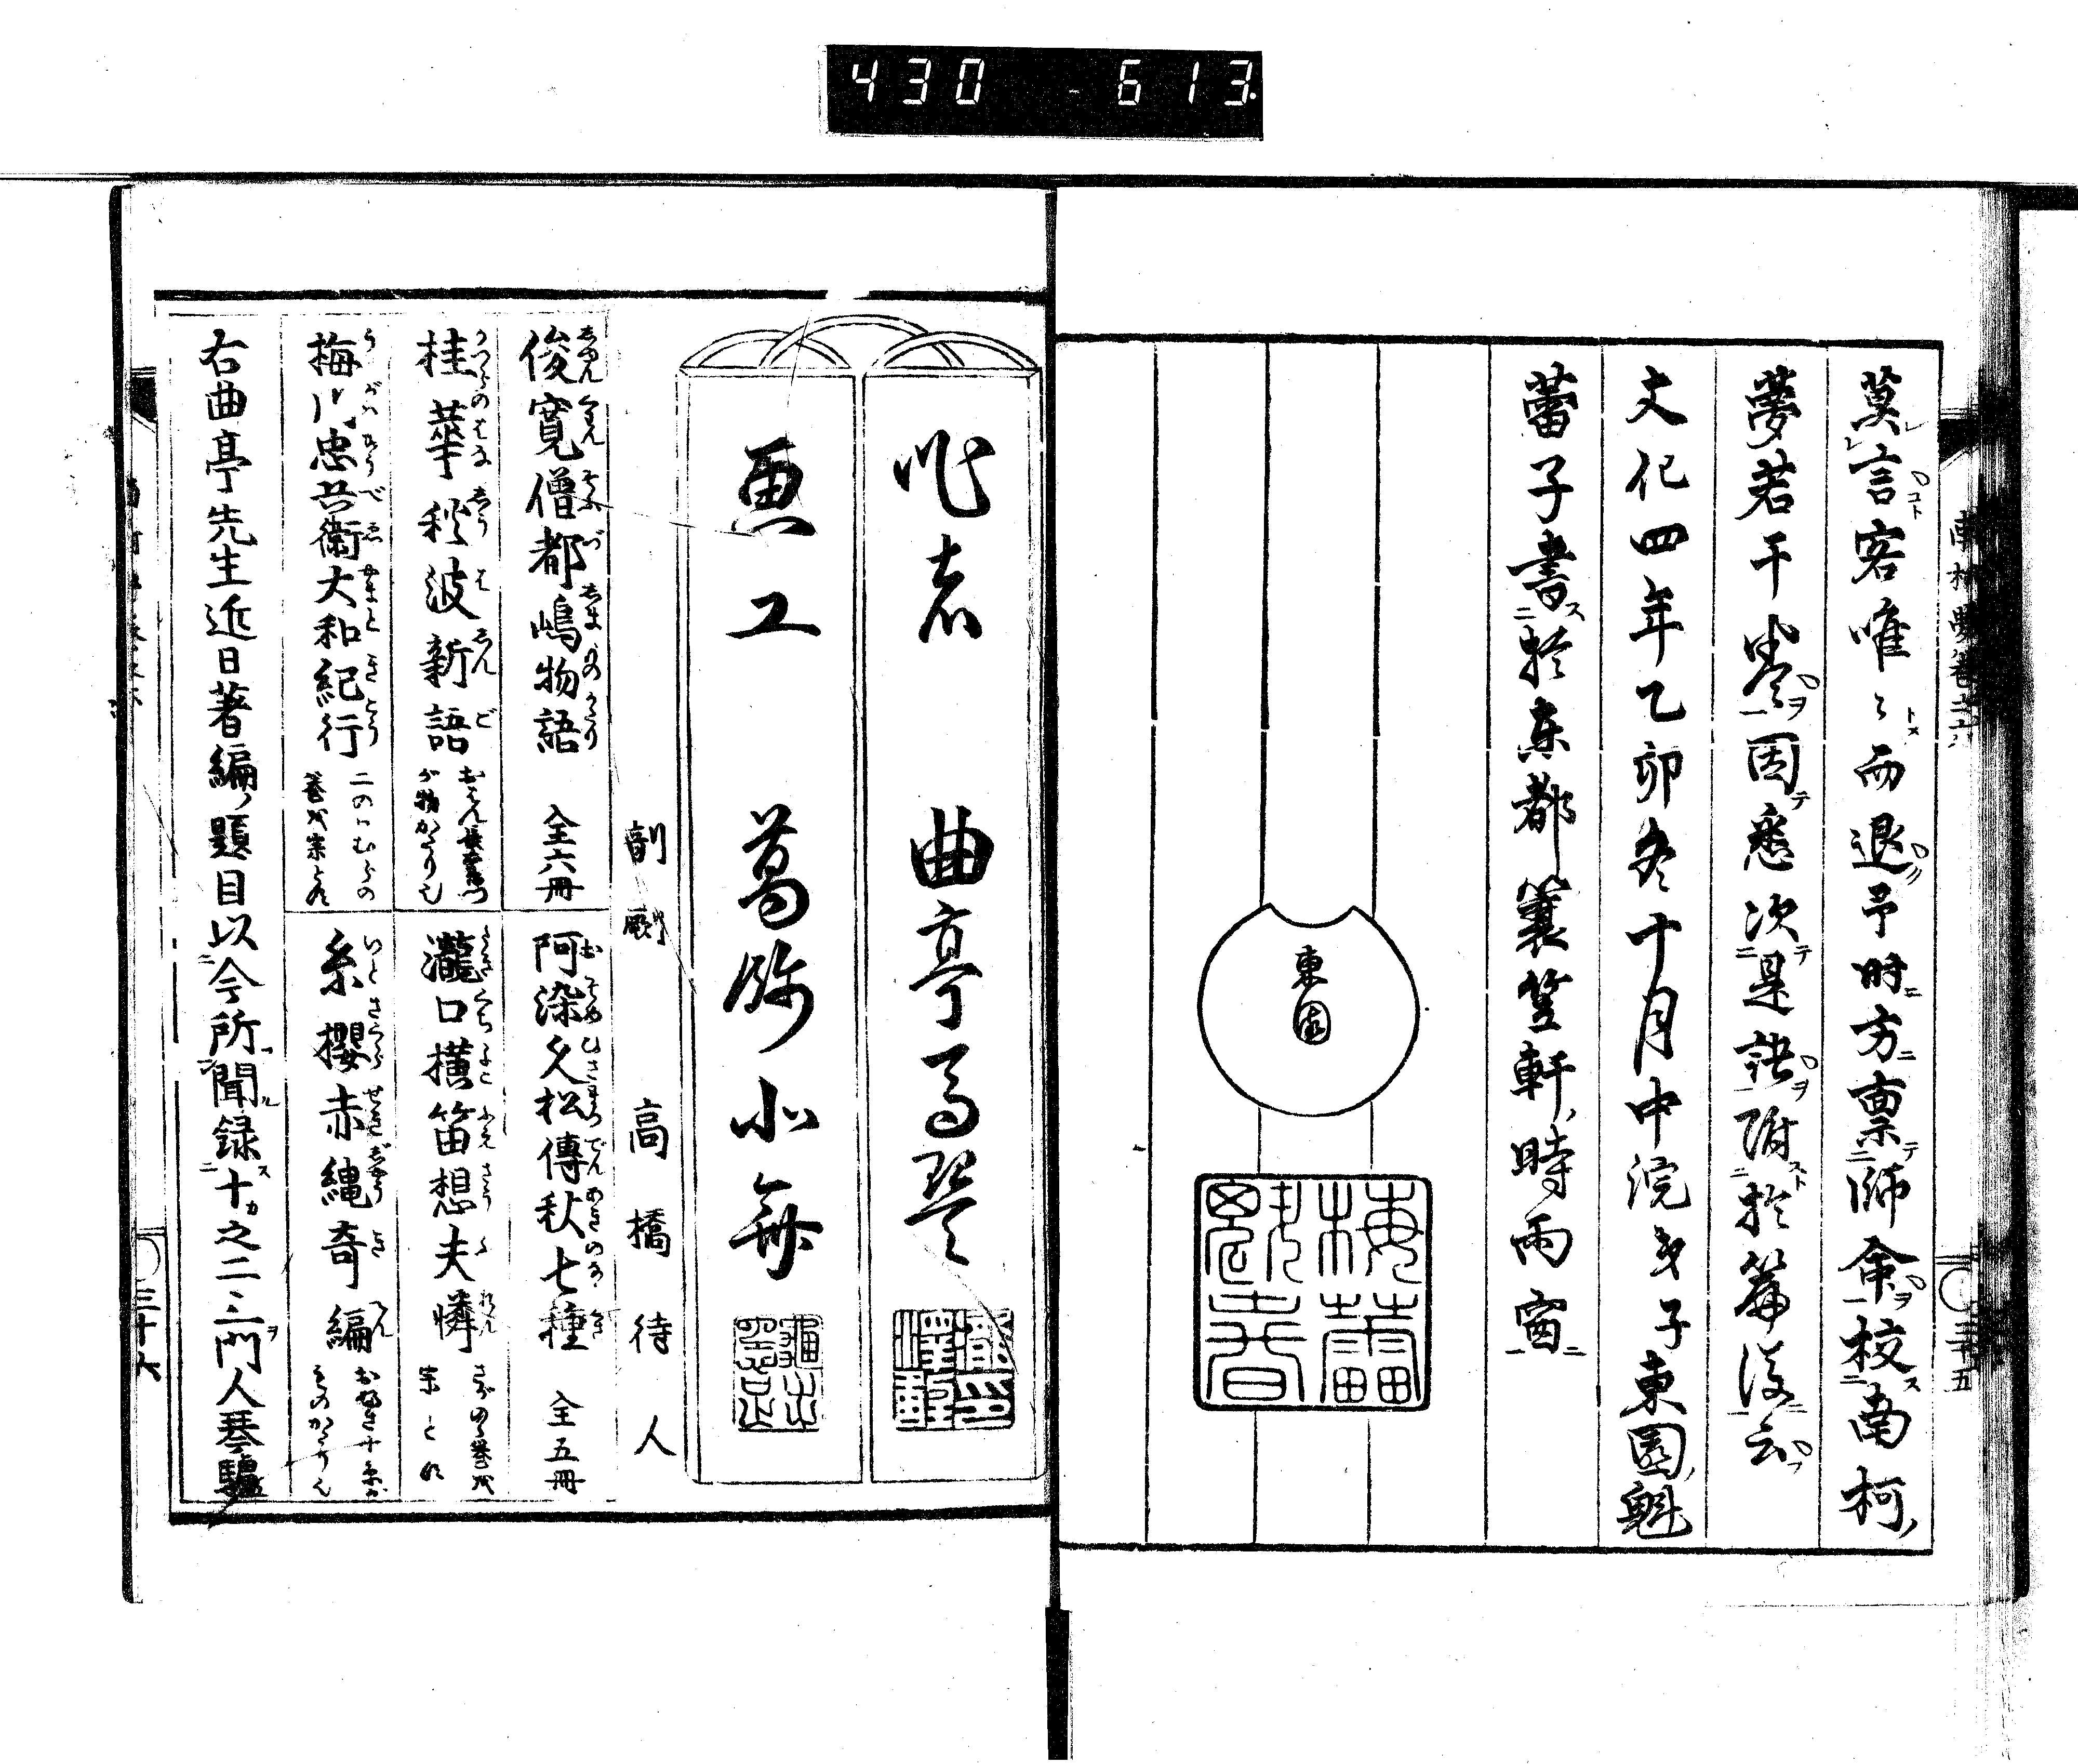 430 - 613
莫言客唯々而退予時方稟師命校南柯
夢若干巻因悉次是談附於篇後云
文化四年乙卯冬十月中浣才子東園魁
蕾子書於東都簑笠軒時雨窗
東園
梅蕾
作者 曲亭馬琴
画工 葛飾北齋
剞劂 高橋待人
俊寛僧都嶋物語 全六冊
阿染久松傳秋七種 全五冊
桂華秋波新語
瀧口横笛想夫憐
梅川忠兵衛大和紀行
糸櫻赤縄奇編
右曲亭先生近日著編題目以今所聞録十之二三門人琴驢
三十五
三十六